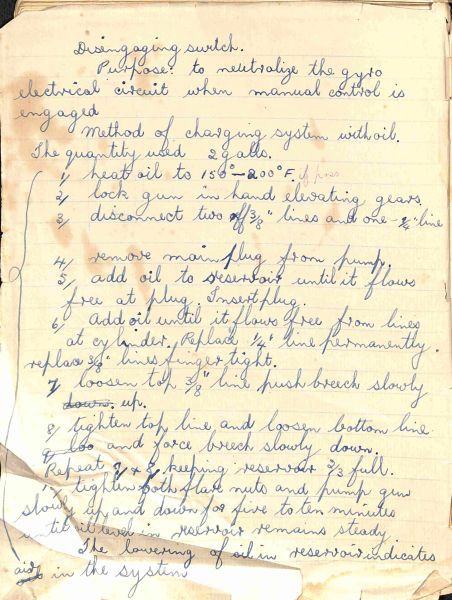 Disengaging switch.
Purpose: to neutralize the gyro
electrical circuit when manual control is
engaged
Method of charging system with oil.
The quantity used 2 galls.
1/ heat oil to 150°-200°F. if poss
2/ lock gun in hand elevating gears.
3/ disconnect two 3/8" lines and one 1/4" line
4/ remove main plug from pump.
5/ add oil to reservoir until it flows
free at plug. Insert plug.
6/ Add oil until it flows free from lines
at cylinder. Replace 1/4" line permanently.
replace 3/8" lines finger tight.
7/ loosen top 3/8" line push breech slowly
down. up.
8/ tighten top line and loosen bottom line
and force breech slowly down.
Repeat 7 & 8, keeping reservoir 2/3 full.
tighten both flare nuts and pump gun
slowly up and down for five to ten minutes
until oil level in reservoir remains steady.
The lowering of oil in reservoir indicates
air in the system